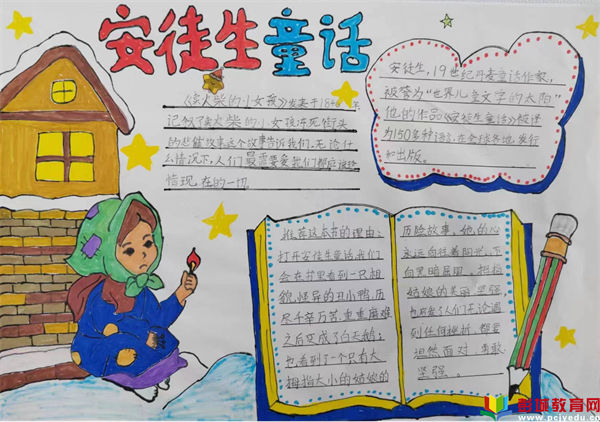 安徒生童话
《卖火柴的小女孩》发表于184 年
记叙了卖火柴的小女孩冻死街头
的悲惨故事这个故事告诉我们,无论什
么情况下,人们最需要爱我们都应该珍
惜现在的一切
安徒生,19世纪丹麦童话作家,
被誉为"世界儿童文学的太阳"
他的作品《安徒生童话》被译
为150多种语言,在全球各地发行
和出版。
推荐这本书的理由:
打开安徒生童话我们
会在书里看到一只相
貌怪异的丑小鸭,历
尽千辛万苦,重重磨难
之后变成了白天鹅;
也看到了一个只有大
拇指大小的姑娘的
历险故事,她的心
永远向往着阳光,不
向黑暗屈服。拇指
姑娘的美丽坚强
人们无论遇
到任何挫折,都要
坦然面对,勇敢
坚强。
彭城教育网
www.pcjyedu.com